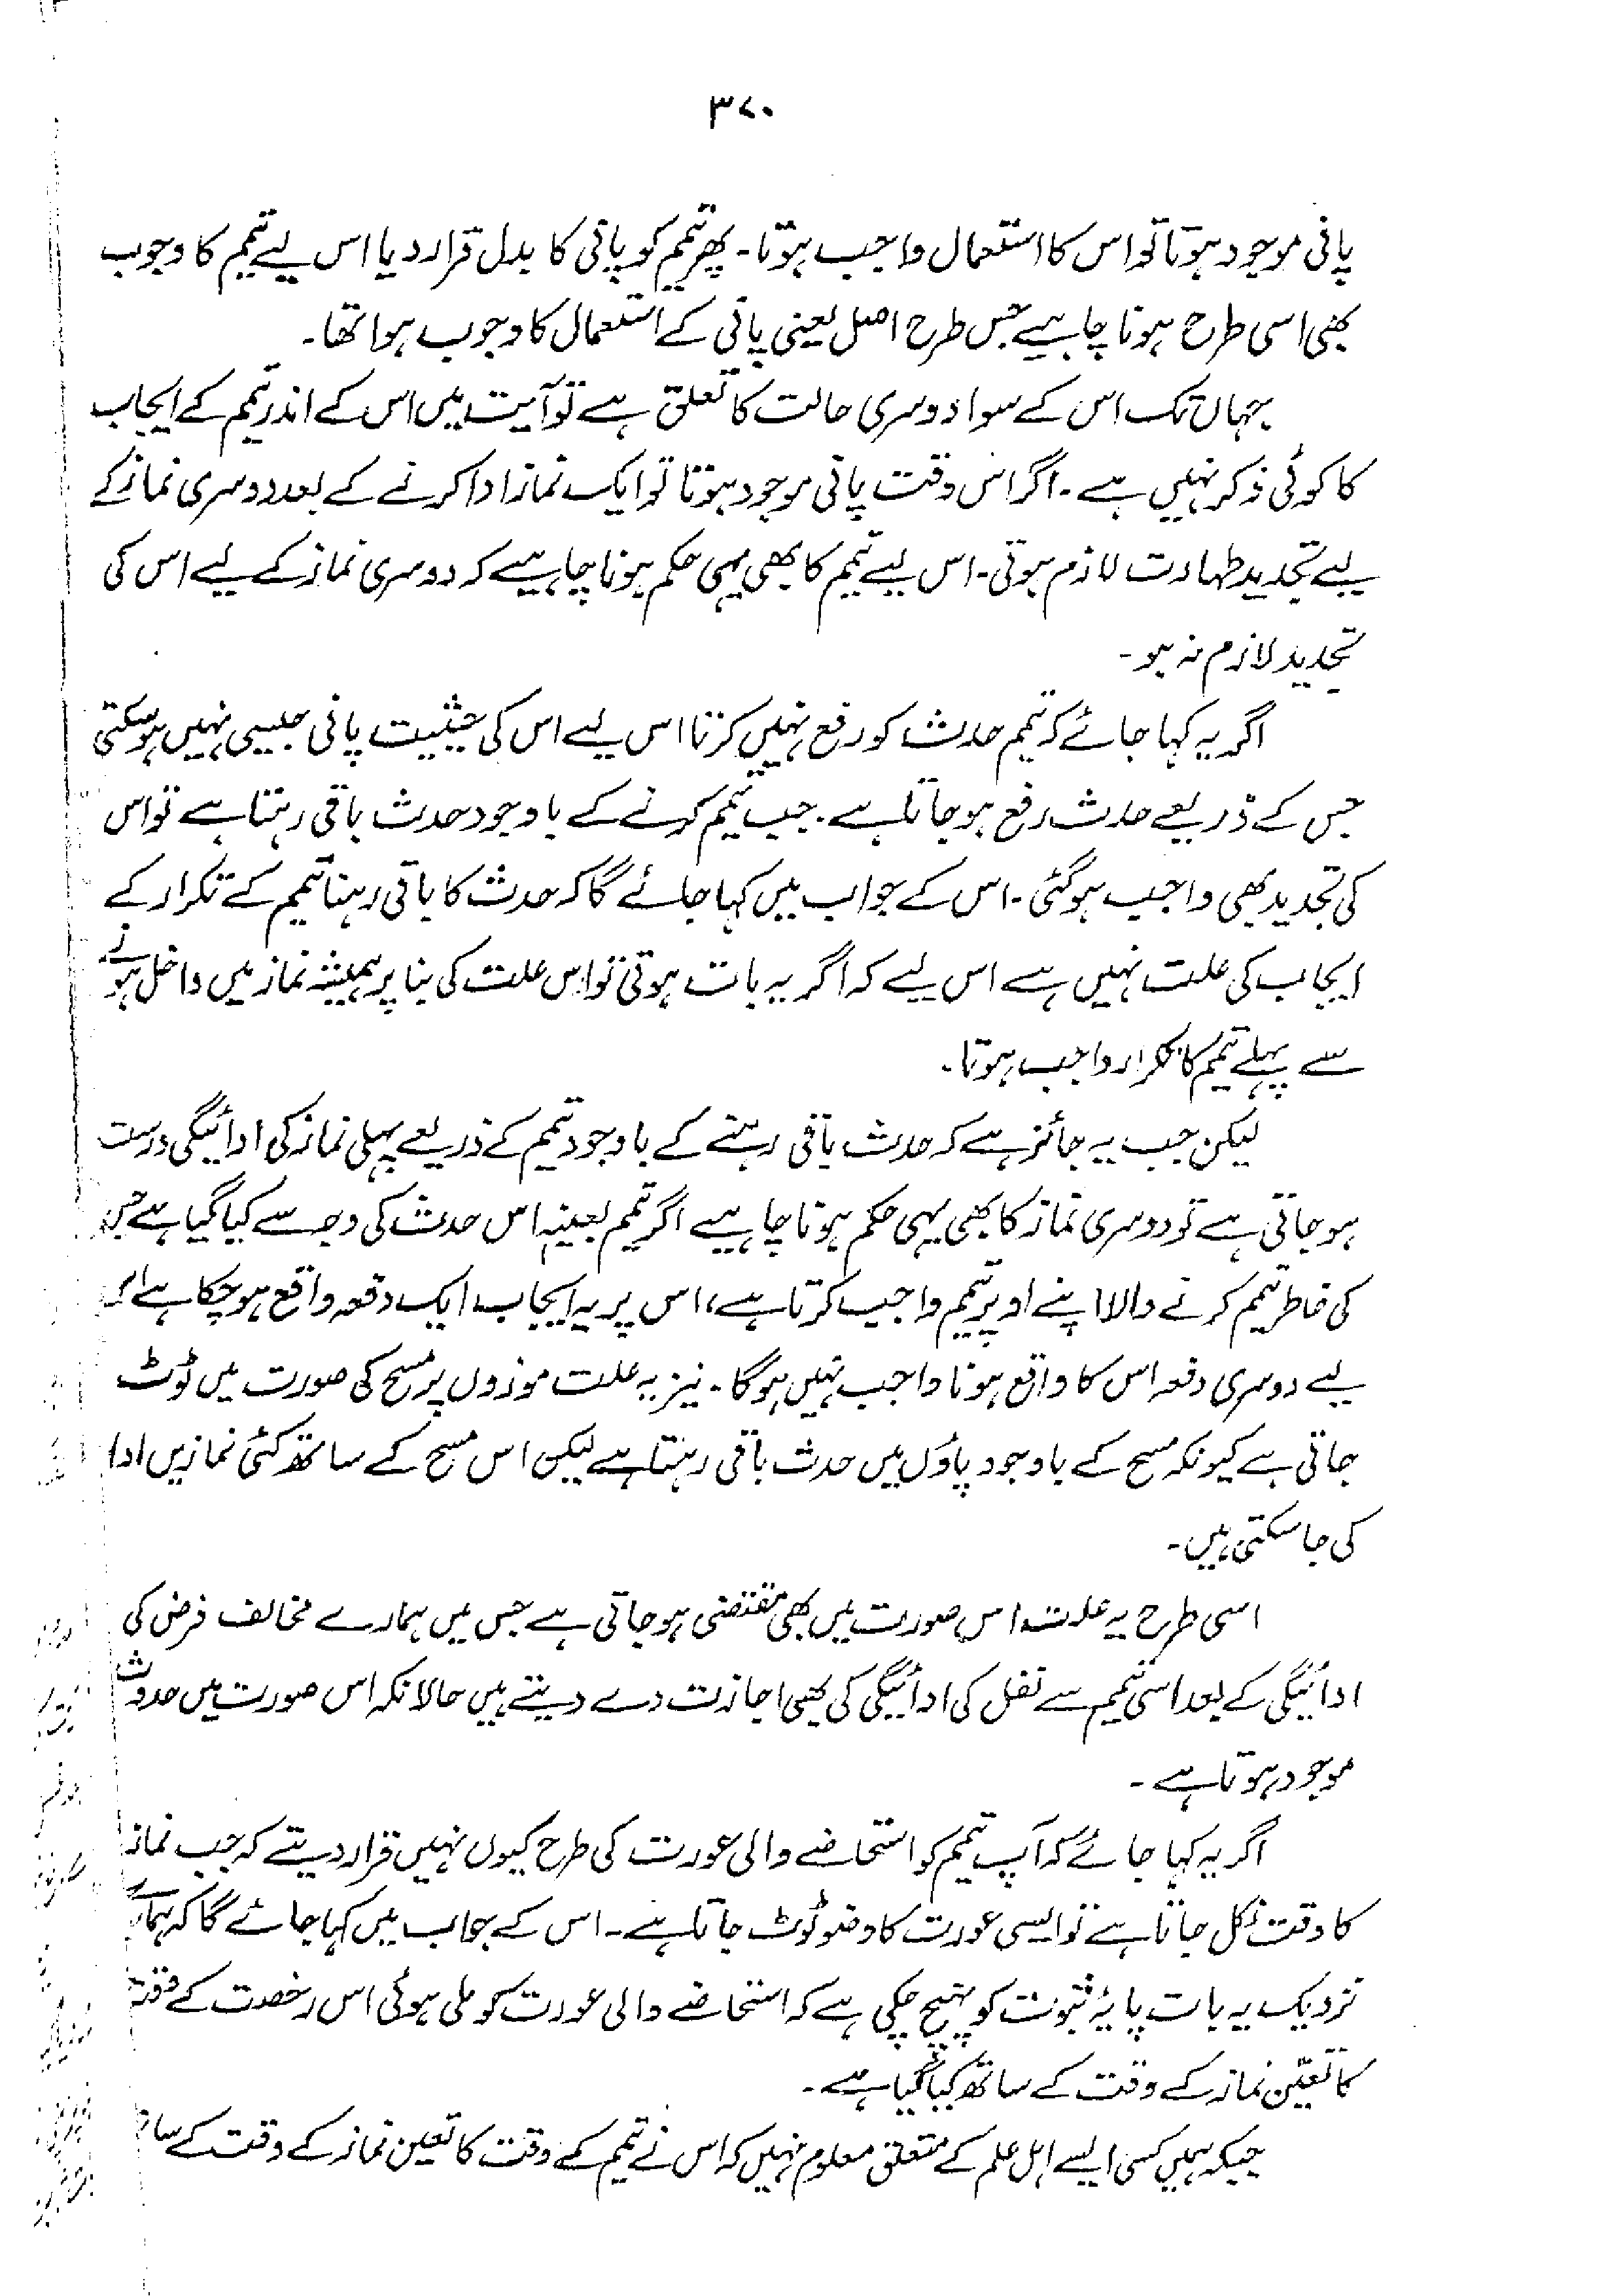 ۳۷۰
پانی موجود ہوتا تو اس کا استعمال واجب ہوتا۔ پھر تیمم کو پانی کا بدل قرار دیا اس لیے تیمم کا وجوب
بھی اسی طرح ہونا چاہیے جس طرح اصل یعنی پانی کے استعمال کا وجوب ہوا تھا۔
جہاں تک اس کے سوا دوسری حالت کا تعلق ہے تو آیت میں اس کے اندر تیمم کے ایجاب
کا کوئی ذکر نہیں ہے۔ اگر اس وقت پانی موجود ہوتا تو ایک نماز ادا کرنے کے بعد دوسری نماز کے
لیے تجدید طہارت لازم ہوتی۔ اس لیے تیمم کا بھی یہی حکم ہونا چاہیے کہ دوسری نماز کے لیے اس کی
تجدید لازم نہ ہو۔
اگر یہ کہا جائے کہ تیمم حدث کو رفع نہیں کرتا اس لیے اس کی حیثیت پانی جیسی نہیں ہو سکتی
جس کے ذریعے حدث رفع ہو جاتا ہے۔ جب تیمم کرنے کے باوجود حدث باقی رہتا ہے تو اس
کی تجدید بھی واجب ہو گئی۔ اس کے جواب میں کہا جائے گا کہ حدث کا باقی رہنا تیمم کے تکرار کے
ایجاب کی علت نہیں ہے اس لیے کہ اگر یہ بات ہوتی تو اس علت کی بنا پر ہمیشہ نماز میں داخل ہونے
سے پہلے تیمم کا تکرار واجب ہوتا۔
لیکن جب یہ جائز ہے کہ حدث باقی رہنے کے باوجود تیمم کے ذریعے پہلی نماز کی ادائیگی درست
ہو جاتی ہے تو دوسری نماز کا بھی یہی حکم ہونا چاہیے اگر تیمم بعینہٖ اس حدث کی وجہ سے کیا گیا ہے جس
کی خاطر تیمم کرنے والا اپنے اوپر تیمم واجب کرتا ہے، اس پر یہ ایجاب ایک دفعہ واقع ہو چکا ہے اس
لیے دوسری دفعہ اس کا واقع ہونا واجب نہیں ہو گا۔ نیز یہ علت موزوں پر مسح کی صورت میں ٹوٹ
جاتی ہے کیونکہ مسح کے باوجود پاؤں میں حدث باقی رہتا ہے لیکن اس مسح کے ساتھ کئی نمازیں ادا
کی جا سکتی ہیں۔
اسی طرح یہ علت اس صورت میں بھی مقتضی ہو جاتی ہے جس میں ہمارے مخالف فرض کی
ادائیگی کے بعد اسی تیمم سے نفل کی ادائیگی کی بھی اجازت دے دیتے ہیں حالانکہ اس صورت میں حدوث
موجود ہوتا ہے۔
اگر یہ کہا جائے کہ آپ تیمم کو استحاضے والی عورت کی طرح کیوں نہیں قرار دیتے کہ جب نماز
کا وقت نکل جاتا ہے تو ایسی عورت کا وضو ٹوٹ جاتا ہے۔ اس کے جواب میں کہا جائے گا کہ ہمارے
نزدیک یہ بات پایۂ ثبوت کو پہنچ چکی ہے کہ استحاضے والی عورت کو ملی ہوئی اس رخصت کے وقت
کا تعیّن نماز کے وقت کے ساتھ کیا گیا ہے۔
جبکہ ہمیں کسی ایسے اہل علم کے متعلق معلوم نہیں کہ اس نے تیمم کے وقت کا تعین نماز کے وقت کے